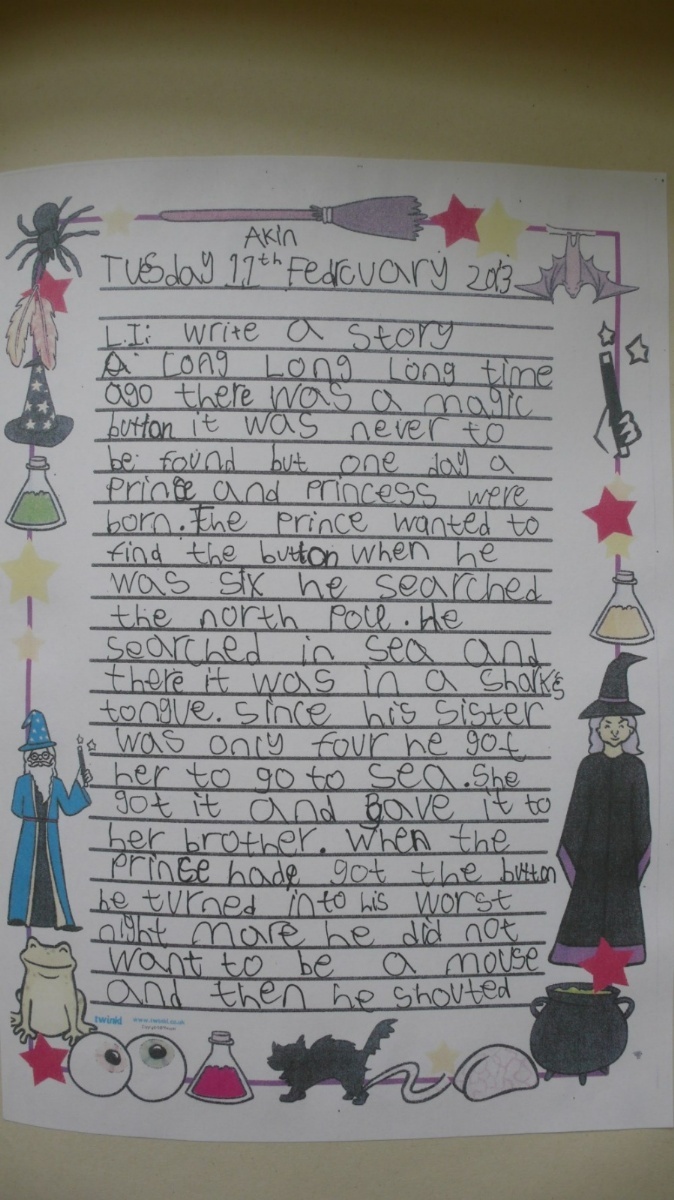 Akin
Tuesday 11th Fedrcuary 2013
L.I: write a story
A long Long Long time
ago there was a magic
button it was never to
be found but one day a
prince and princess were
born. The prince wanted to
find the button when he
was six he searched
the north Pole. He
searched in sea and
there it was in a shark's
tongue. since his sister
was only four he got
her to go to sea. She
got it and gave it to
her brother. When the
prince hade got the button
he turned into his worst
night mare he did not
want to be a mouse
and then he shouted
twinkl www.twinkl.co.uk